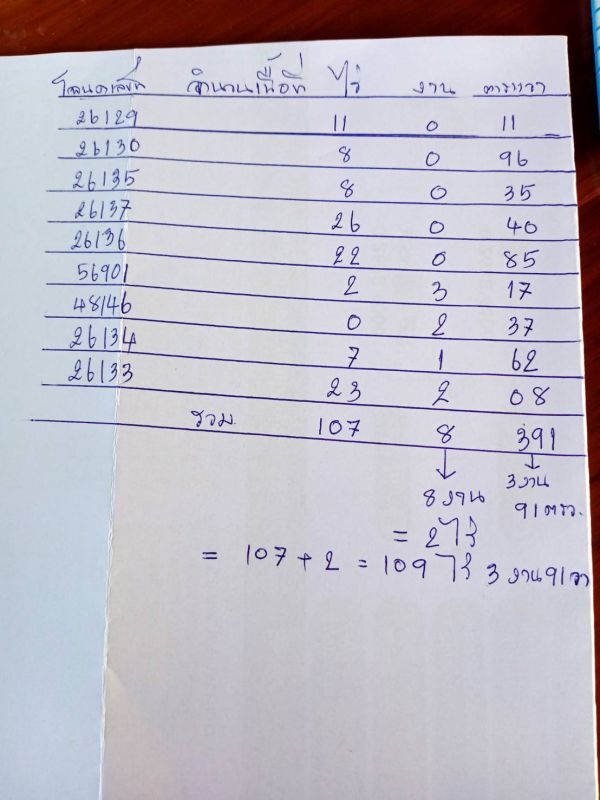 โฉนดเลขที่ จำนวนเนื้อที่ ไร่ งาน ตารางวา
26129 11 0 11
26130 8 0 96
26135 8 0 35
26137 26 0 40
26136 22 0 85
56901 2 3 17
48146 0 2 37
26134 7 1 62
26133 23 2 08
รวม 107 8 391
8 งาน 3 งาน
91 ตรว.
= 2 ไร่
= 107 + 2 = 109 ไร่ 3 งาน 91 วา